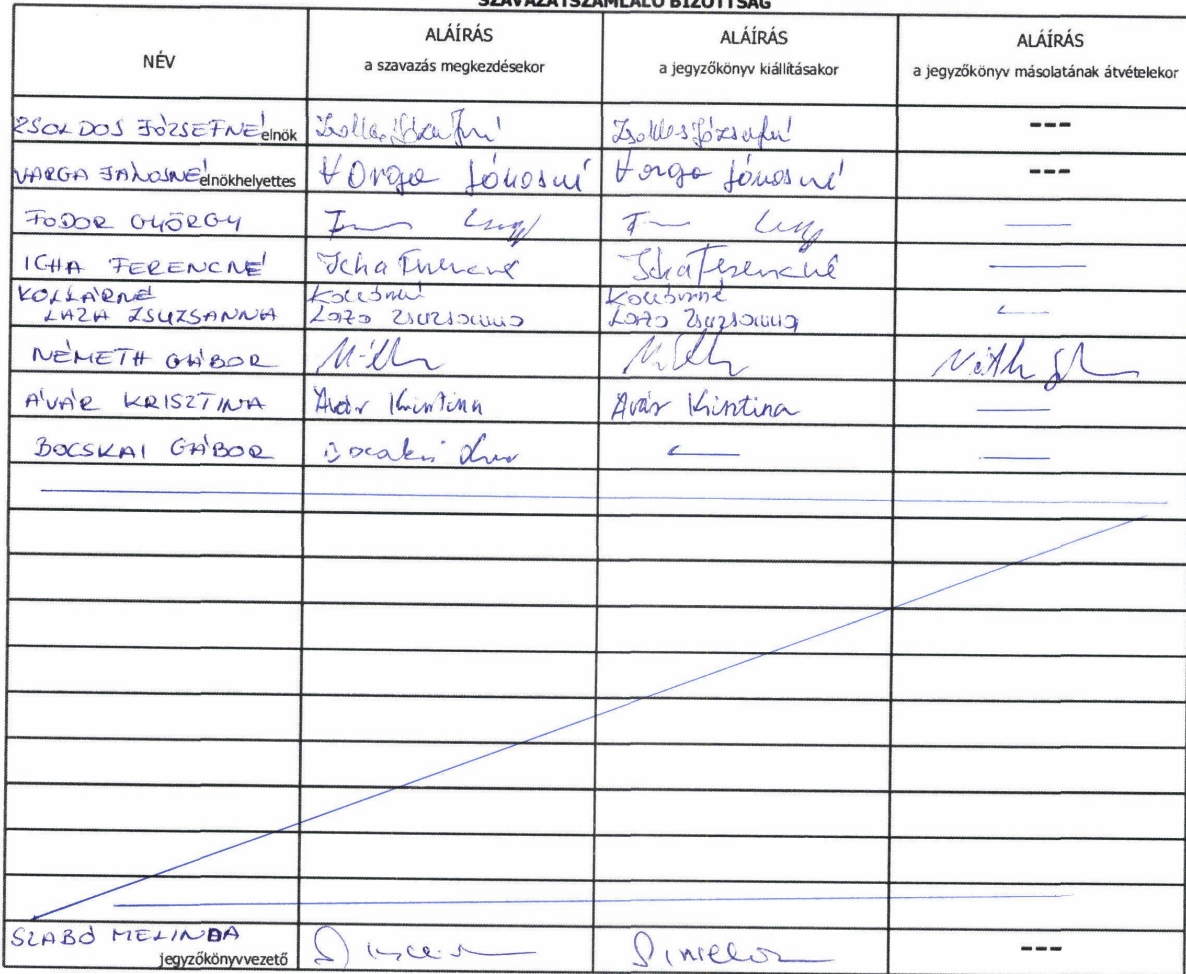 SZAVAZATSZÁMLÁLÓ BIZOTTSÁG
NÉV
ALÁÍRÁS
a szavazás megkezdésekor
ALÁÍRÁS
a jegyzőkönyv kiállításakor
ALÁÍRÁS
a jegyzőkönyv másolatának átvételekor
ZSOLDOS JÓZSEFNÉ elnök
Zsoldos Józsefné
---
VARGA JÁNOSNÉ elnökhelyettes
Varga Jánosné
Varga Jánosné
---
FODOR GYÖRGY
ICHA FERENCNÉ
Icha Ferencné
Icha Ferencné
KOLLÁRNÉ
LAZA ZSUZSANNA
Kollárné
Laza Zsuzsanna
Kollárné
Laza Zsuzsanna
NÉMETH GÁBOR
AVÁR KRISZTINA
Avár Krisztina
Avár Krisztina
BOCSKAI GÁBOR
SZABÓ MELINDA
jegyzőkönyvvezető
---